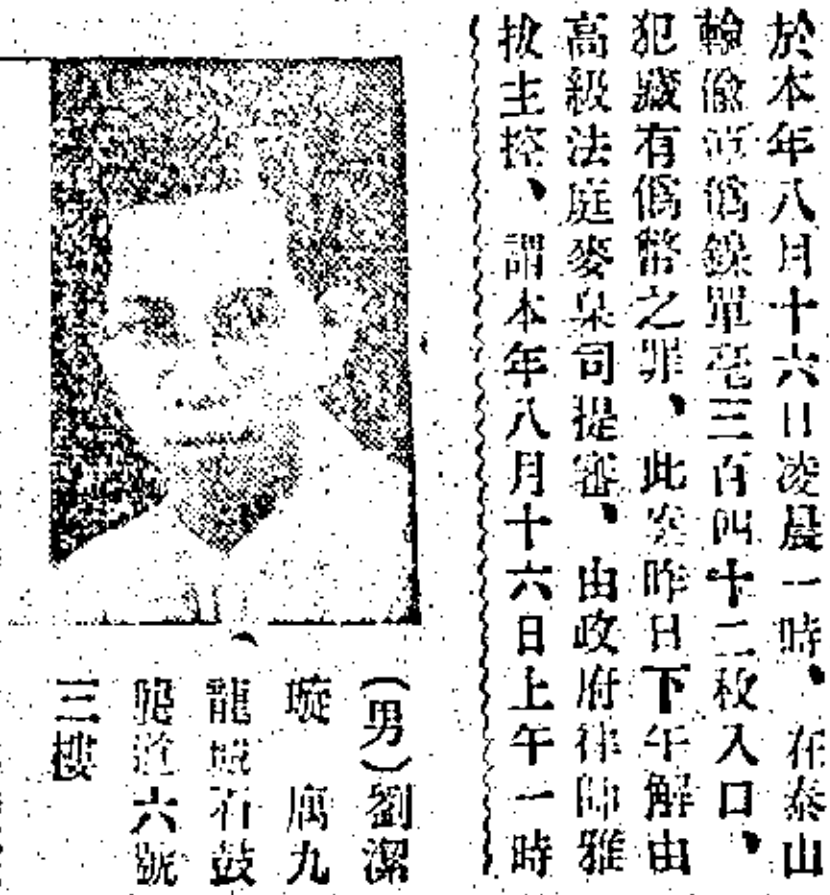 於本年八月十六日凌晨一時、在泰山
輪偷運僞鎳單毫三百四十二枚入口、
犯藏有僞幣之罪、此案昨日下午解由
高級法庭麥臬司提審、由政府律師雅
披主控、謂本年八月十六日上午一時
(男)劉潔
璇 寓九
龍 石鼓
道六號
三樓